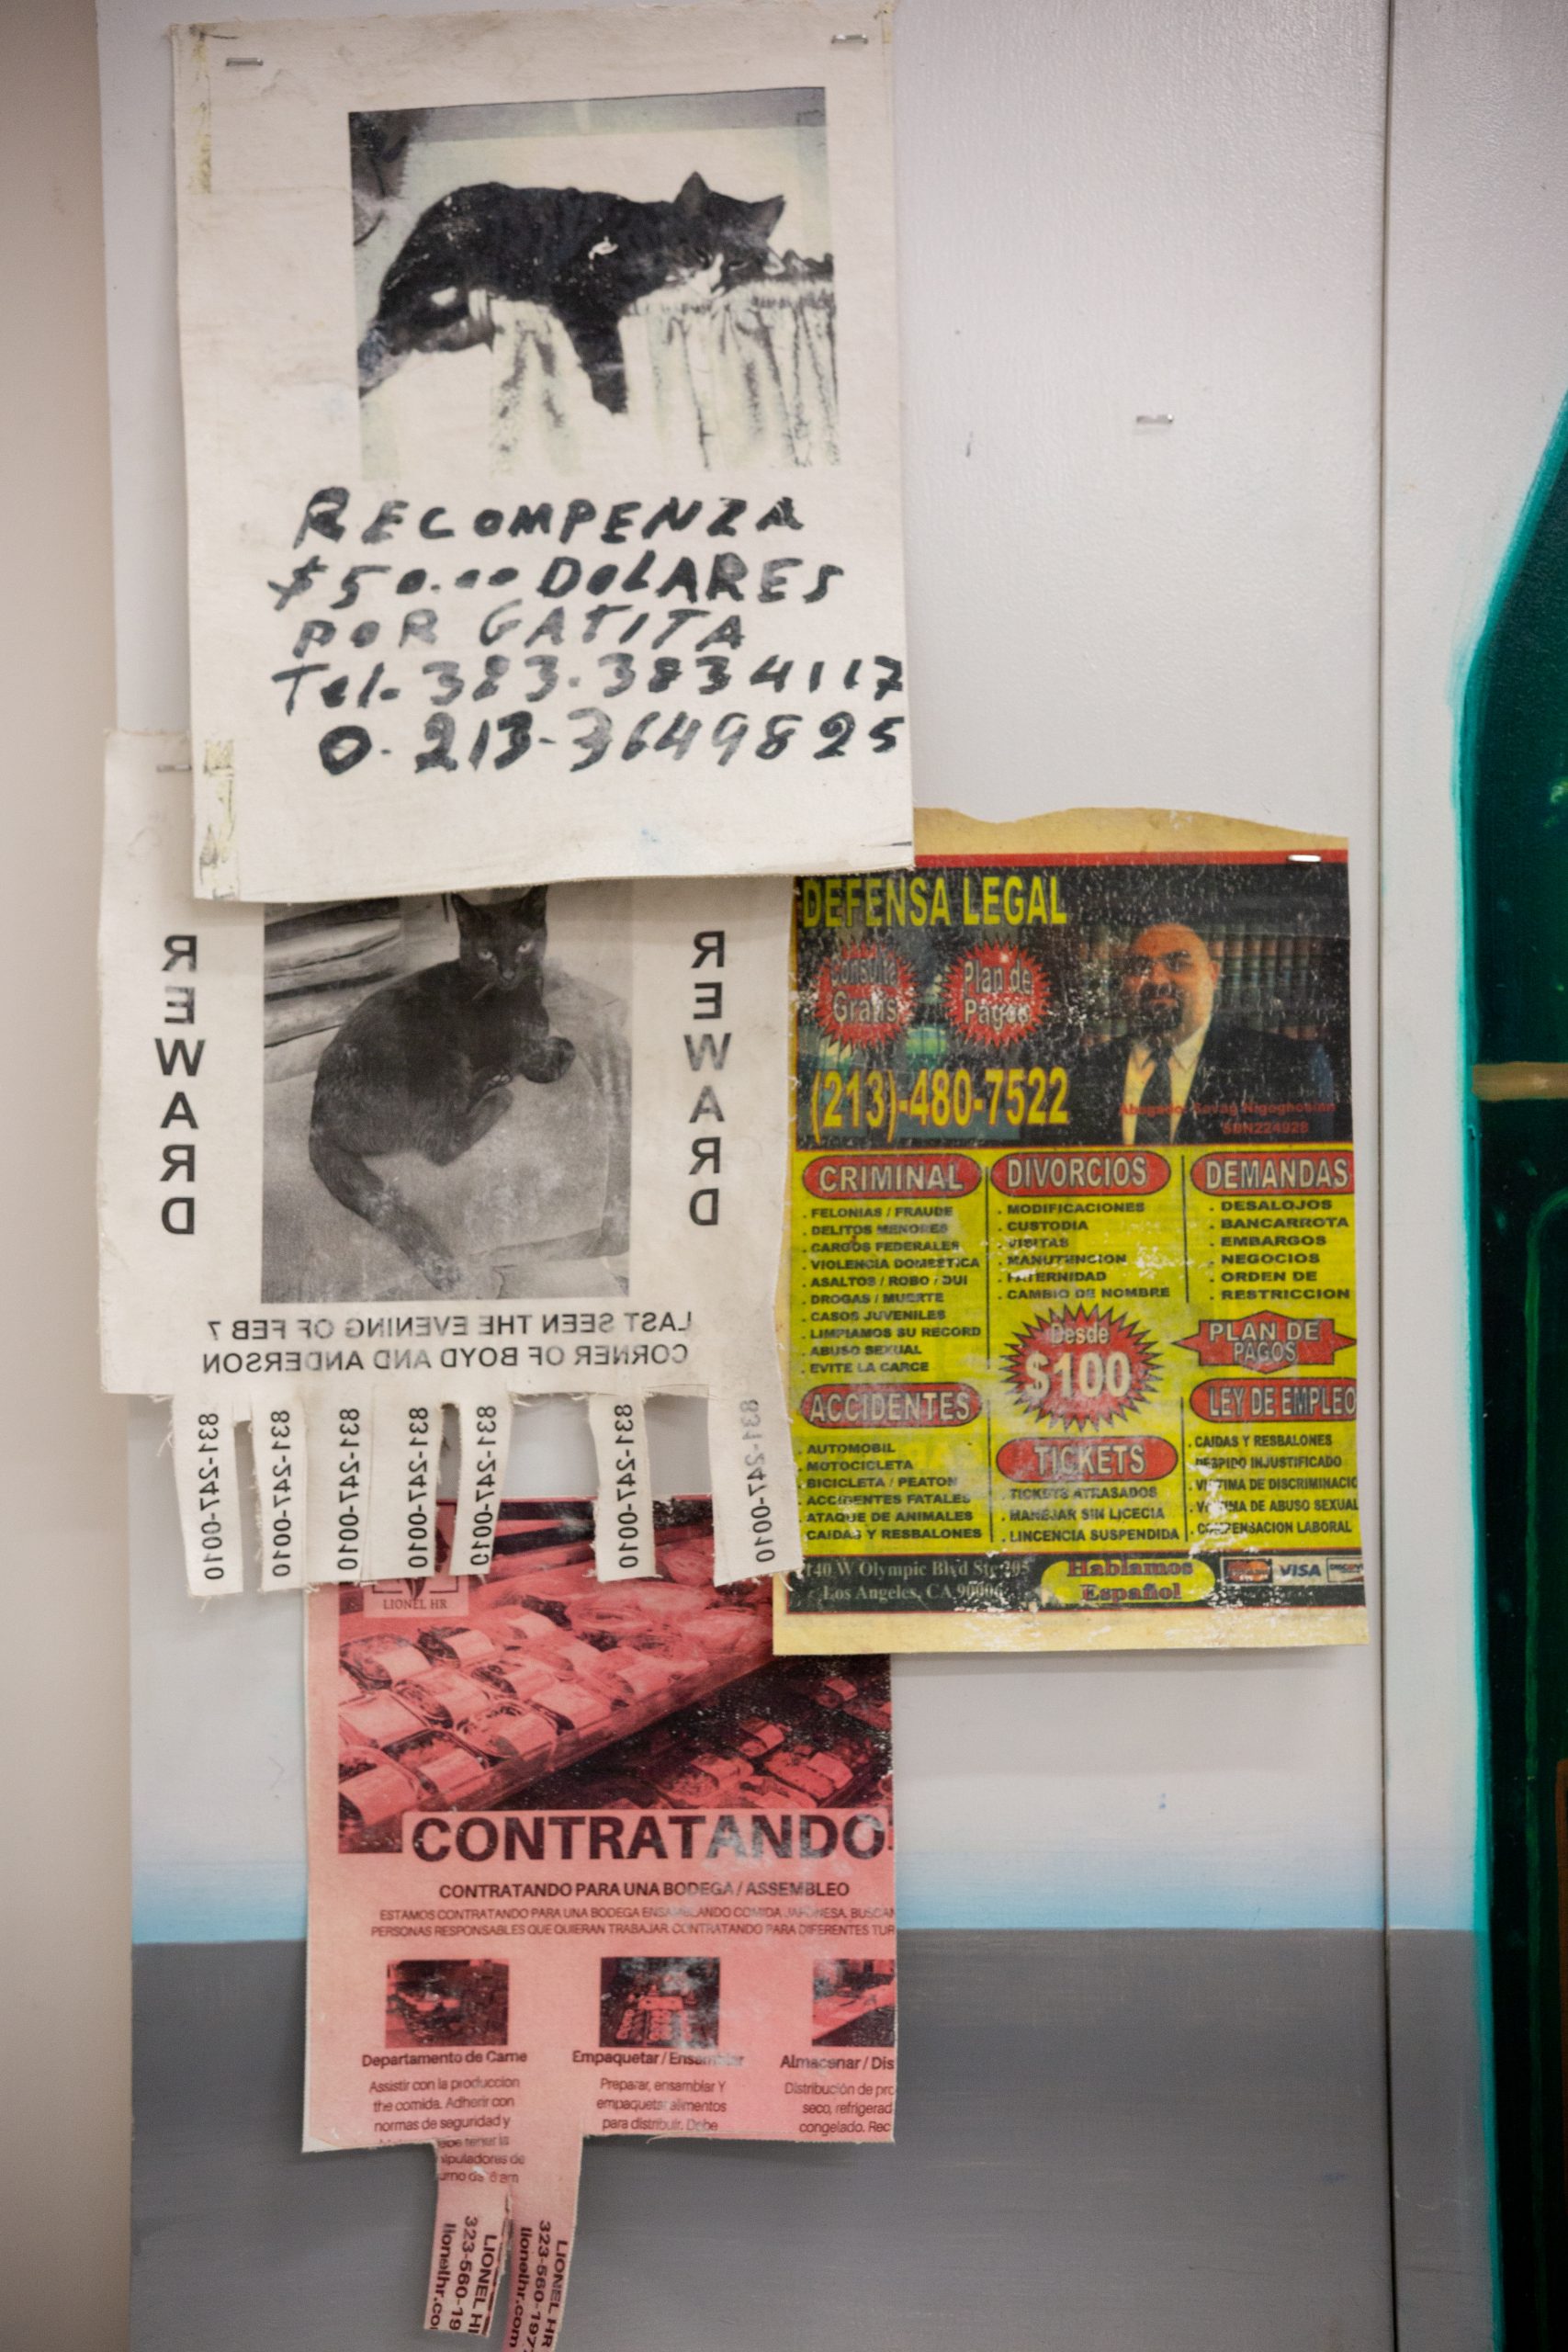 RECOMPENZA
$50.00 DOLARES
POR GATITA
Tel- 323-3834117
O- 213-3649825
REWARD
REWARD
LAST SEEN THE EVENING OF FEB 7
CORNER OF BOYD AND ANDERSON
831-247-0010
831-247-0010
831-247-0010
831-247-0010
831-247-0010
831-247-0010
831-247-0010
DEFENSA LEGAL
Consulta
Gratis
Plan de
Pagos
(213)-480-7522
Abogado: Savag Nigoghosian
SBN224928
CRIMINAL
. FELONIAS / FRAUDE
. DELITOS MENORES
. CARGOS FEDERALES
. VIOLENCIA DOMESTICA
. ASALTOS / ROBO / DUI
. DROGAS / MUERTE
. CASOS JUVENILES
. LIMPIAMOS SU RECORD
. ABUSO SEXUAL
. EVITE LA CARCE
DIVORCIOS
. MODIFICACIONES
. CUSTODIA
. VISITAS
. MANUTENCION
. PATERNIDAD
. CAMBIO DE NOMBRE
DEMANDAS
. DESALOJOS
. BANCARROTA
. EMBARGOS
. NEGOCIOS
. ORDEN DE
. RESTRICCION
Desde
$100
PLAN DE
PAGOS
ACCIDENTES
. AUTOMOBIL
. MOTOCICLETA
. BICICLETA / PEATON
. ACCIDENTES FATALES
. ATAQUE DE ANIMALES
. CAIDAS Y RESBALONES
TICKETS
. TICKETS ATRASADOS
. MANEJAR SIN LICECIA
. LINCENCIA SUSPENDIDA
LEY DE EMPLEO
. CAIDAS Y RESBALONES
. DESPIDO INJUSTIFICADO
. VICTIMA DE DISCRIMINACIO
. VICTIMA DE ABUSO SEXUAL
. COMPENSACION LABORAL
W Olympic Blvd Ste 205
Los Angeles, CA 90006
Hablamos
Español
VISA
LIONEL HR
CONTRATANDO
CONTRATANDO PARA UNA BODEGA / ASSEMBLEO
ESTAMOS CONTRATANDO PARA UNA BODEGA ENSAMBLANDO COMIDA JAPONESA. BUSCAN
PERSONAS RESPONSABLES QUE QUIERAN TRABAJAR. CONTRATANDO PARA DIFERENTES TUR
Departamento de Carne
Assistir con la produccion
the comida. Adherir con
normas de seguridad y
debe tener la
nipuladores de
urno de 6 am
Empaquetar / Ensamblar
Preparar, ensamblar Y
empaquetar alimentos
para distribuir. Debe
Almacenar / Dis
Distribución de pro
seco, refrigerad
congelado. Rec
LIONEL H
323-560-19
lionelhr.co
LIONEL HR
323-560-197
lionelhr.com